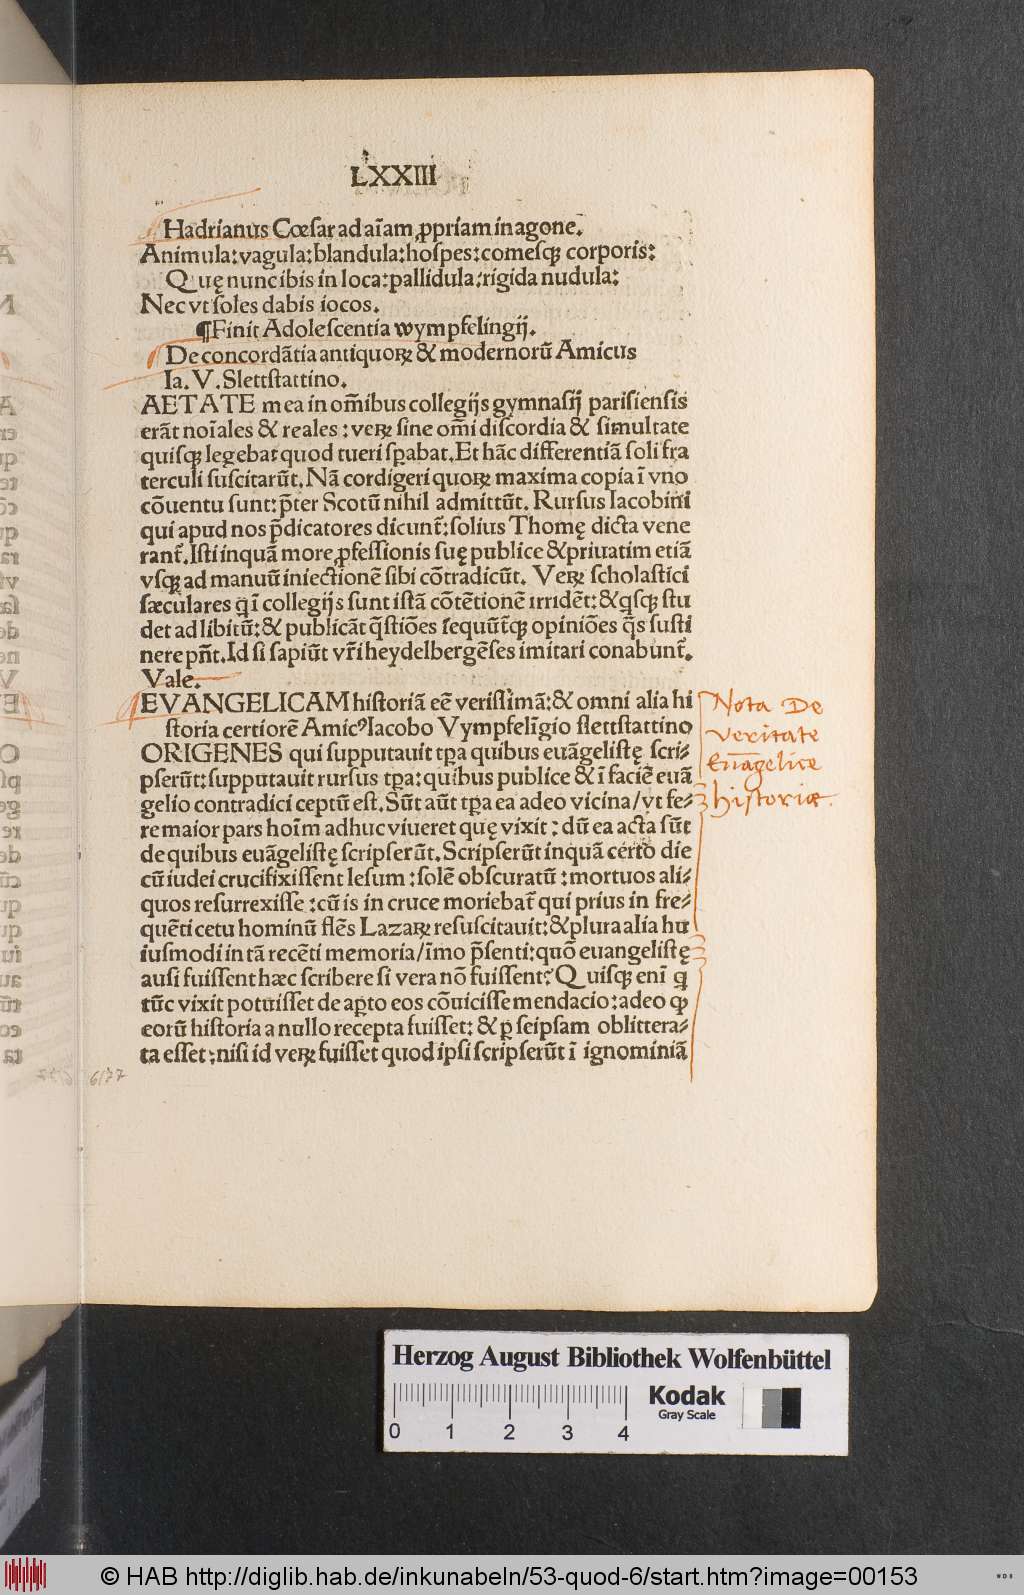 LXXIII
Hadrianus Cœſar ad aīam ꝓpriam in agone.
Animula: vagula: blandula: hoſpes: comeſqꝫ corporis:
Quę nunc ibis in loca: pallidula: rigida nudula:
Nec vt ſoles dabis iocos.
¶Finit Adoleſcentia wympfelingij.
De concordātia antiquoꝝ & modernorū Amicus
Ia. V. Slettſtattino.
AETATE mea in om̄ibus collegijs gymnaſij pariſienſis
erāt noīales & reales: veꝝ ſine om̄i diſcordia & ſimultate
quiſqꝫ legebat quod tueri ſꝑabat. Et hāc differentiā ſoli fra
terculi ſuſcitarūt. Nā cordigeri quoꝝ maxima copia ī vno
cōuentu ſunt: p̄ter Scotū nihil admittūt. Rurſus Iacobini
qui apud nos p̄dicatores dicunt᷑: ſolius Thomę dicta vene
rant᷑. Iſti inquā more ꝓfeſſionis ſuę publice & priuatim etiā
vſqꝫ ad manuū iniectionē ſibi cōtradicūt. Veꝝ ſcholaſtici
ſæculares q̇ ī collegijs ſunt iſtā cōtētionē irridēt: & qſqꝫ ſtu
det ad libitū: & publicāt q̄ſtiōes ſequūt᷑qꝫ opiniōes q̄s ſuſti
nere pn̄t. Id ſi ſapiūt vr̄i heydelbergēſes imitari conabunt᷑.
Vale.
EVANGELICAM hiſtoriā eē veriſſimā: & omni alia hi
ſtoria certiorē Amicꝰ Iacobo Vympfelīgio ſlettſtattino
ORIGENES qui ſupputauit tꝑa quibus euāgeliſtę ſcri-
pſerūt: ſupputauit rurſus tꝑa: quibus publice & ī faciē euā
gelio contradici ceptū eſt. Sūt aūt tꝑa ea adeo vicina/vt fe-
re maior pars hoīm adhuc viueret quę vixit: dū ea acta ſūt
de quibus euāgeliſtę ſcripſerūt. Scripſerūt inquā certo die
cū iudei crucifixiſſent Ieſum: ſolē obſcuratū: mortuos ali-
quos reſurrexiſſe: cū is in cruce moriebat᷑ qui prius in fre-
quēti cetu hominū flēs Lazaꝝ reſuſcitauit: & plura alia hu
iuſmodi in tā recēti memoria/īmo p̄ſenti: quō euangeliſtę
auſi fuiſſent hæc ſcribere ſi vera nō fuiſſent? Quiſqꝫ enī q̇
tūc vixit potuiſſet de aꝑto eos cōuiciſſe mendacio: adeo ꝙ
eorū hiſtoria a nullo recepta fuiſſet: & ꝑ ſeipſam oblittera-
ta eſſet: niſi id veꝝ fuiſſet quod ipſi ſcripſerūt ī ignominiā
Nota De
veritate
Euāgelice
historiæ.
6177
Herzog August Bibliothek Wolfenbüttel
Kodak
Gray Scale
0 1 2 3 4
© HAB http://diglib.hab.de/inkunabeln/53-quod-6/start.htm?image=00153